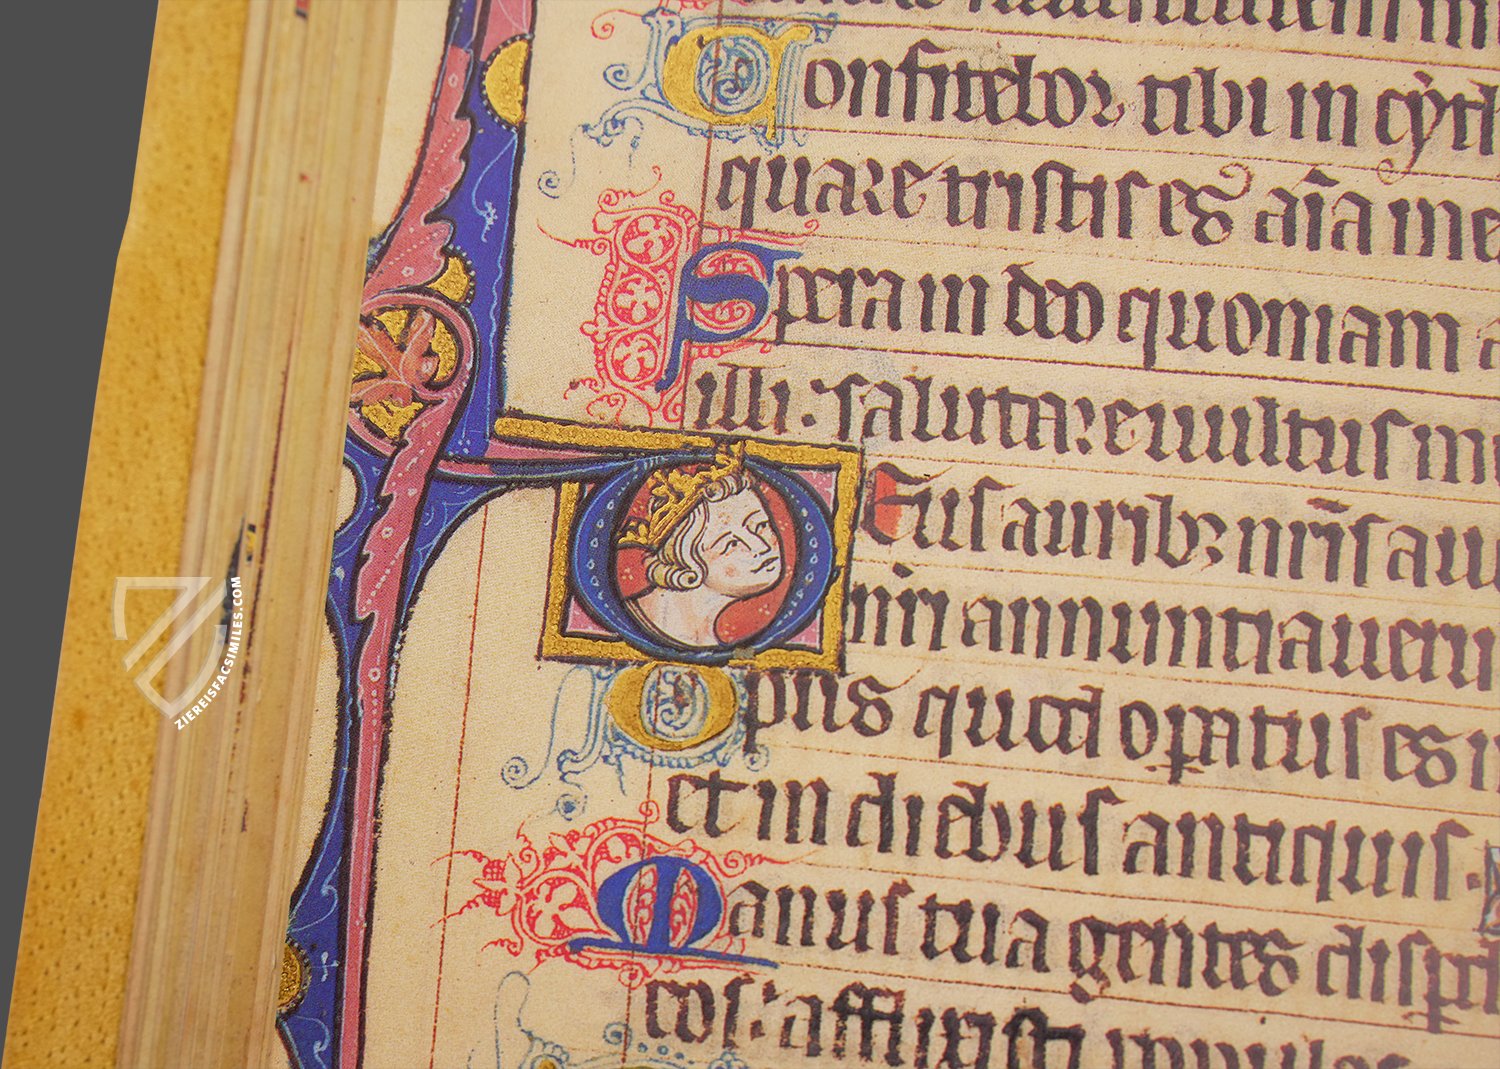 Confitebor tibi in cyth
quare tristis es aīa me
Spera in deo quoniam
illi: salutare uultus m
Deus auribꝫ nr̄is au
nr̄i annuntiaueru
Opus quod opatus es i
et in diebus antiquis.
Manus tua gentes disp
eos: afflixisti populos
ZIEREISFACSIMILES.COM